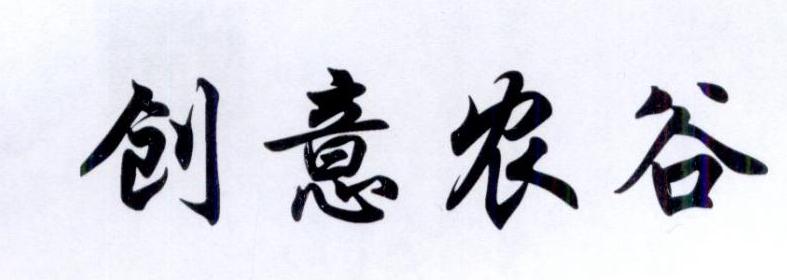 创意农谷